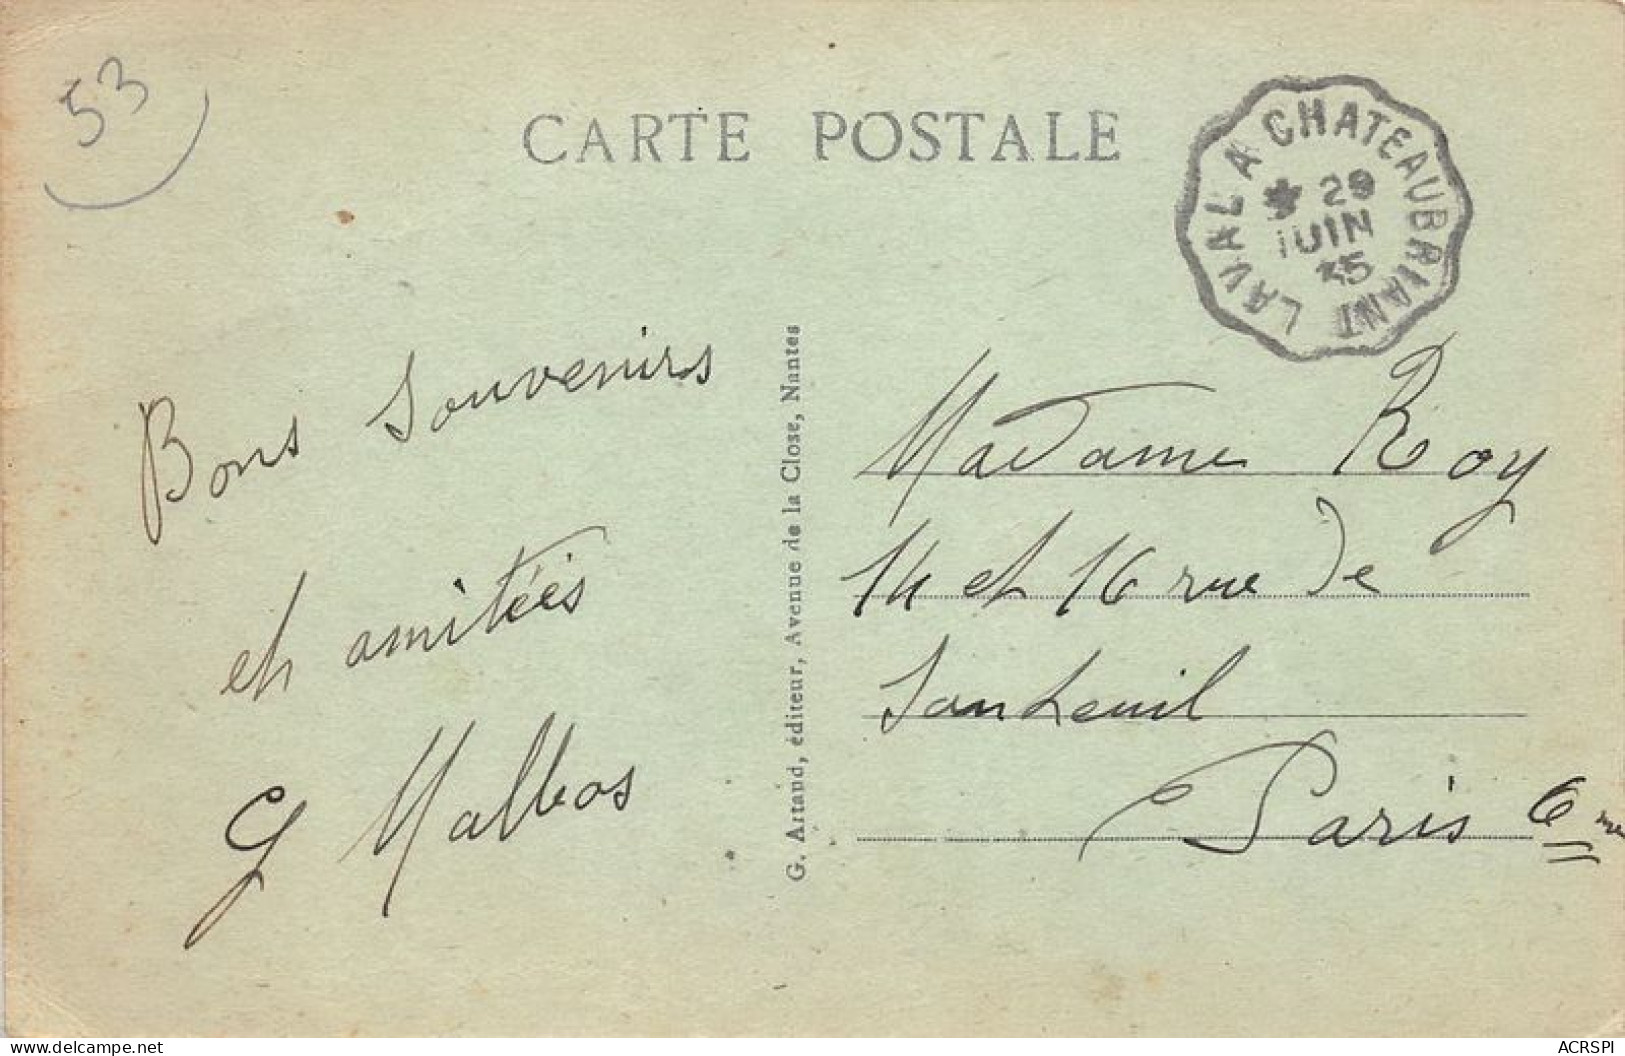 53
CARTE POSTALE
LAVAL A CHATEAUBRIANT
* 29
JUIN
35
Bons Souvenirs
et amitiés
G Malbos
G. Artaud, éditeur, Avenue de la Close, Nantes
Madame Roy
14 et 16 rue de
Santeuil
Paris 6me
www.delcampe.net
ACRSPI